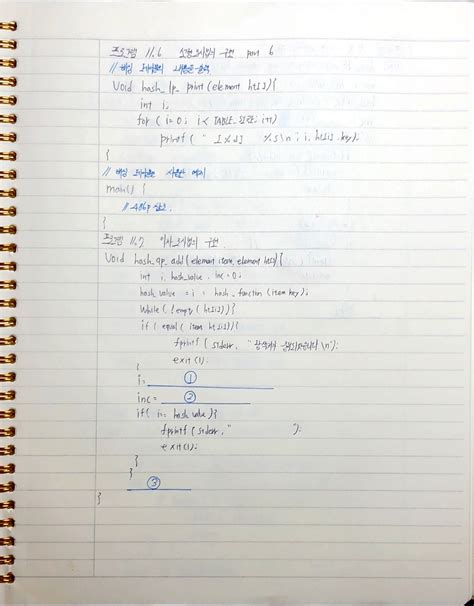 프로그램 11.6 선형조사법의 구현 part 6
// 해싱 테이블의 내용을 출력
Void hash_lp_print(element ht[]){
int i;
for ( i=0; i< TABLE_SIZE; i++)
printf( " [%d] %s\n", i, ht[i].key);
}
// 해싱 테이블을 사용한 예제
main() {
// 486p 참고.
}
프로그램 11.7 이차조사법의 구현.
Void hash_qp_add(element item, element ht[]){
int i, hash_value, inc=0;
hash_value = i = hash_function (item.key);
While( !empty( ht[i])){
if ( equal ( item ht[i])){
fprintf( stderr, " 중복되었습니다 \n");
exit(1);
}
i= ①
inc= ②
if( i= hash_value){
fprintf( stderr, " ");
exit(1);
}
}
③
}